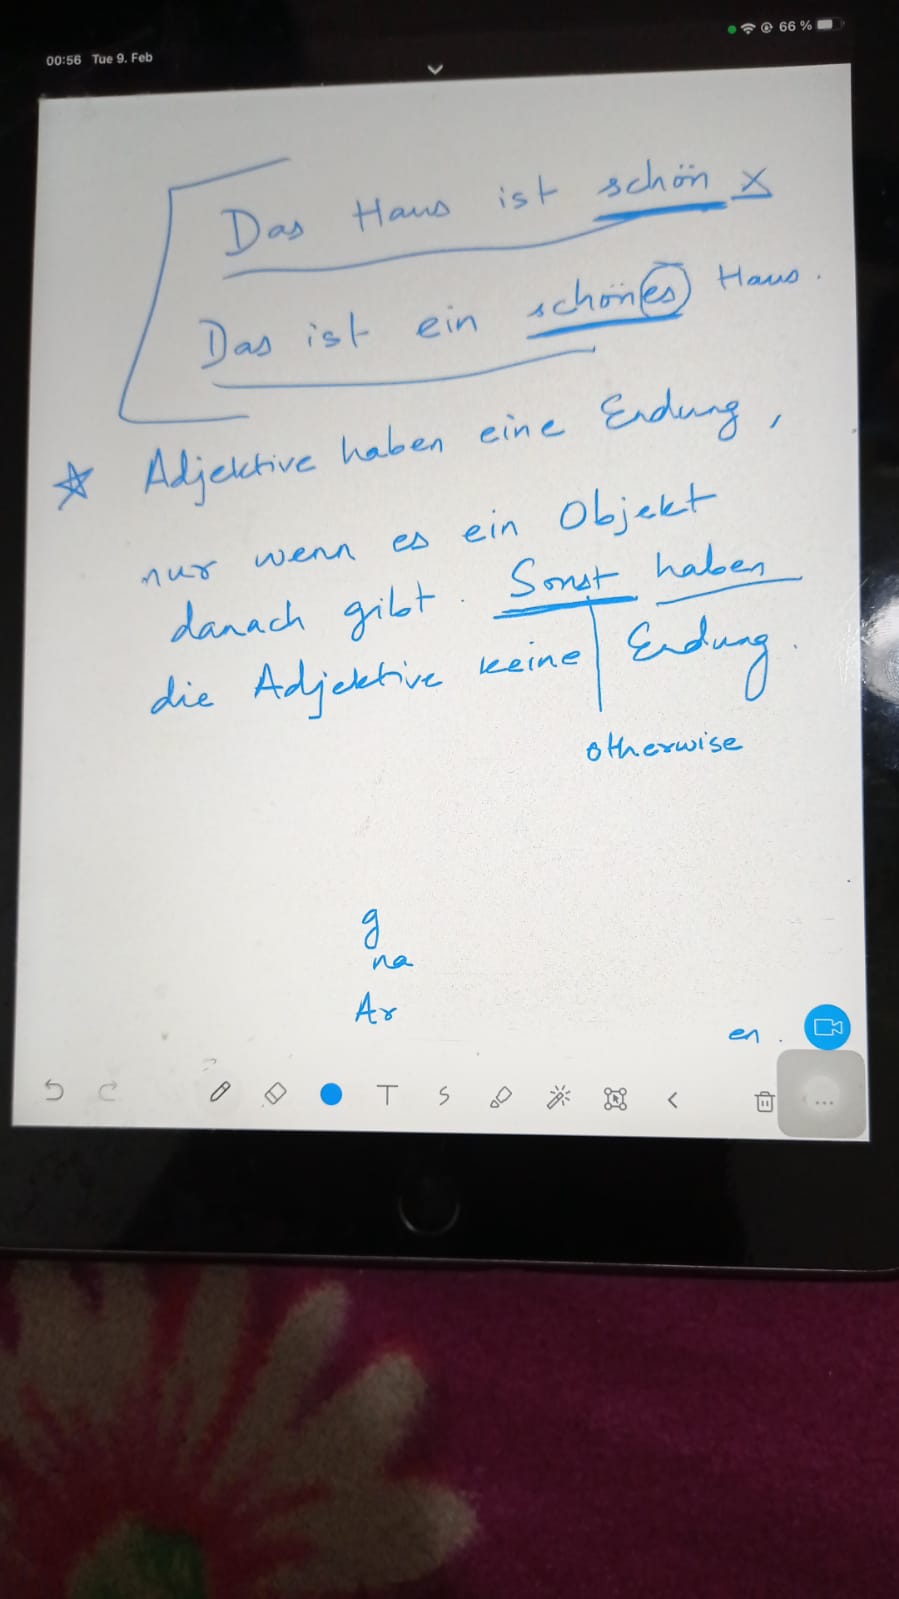 00:56 Tue 9. Feb
66 %
Das Haus ist schön x
Das ist ein schönes Haus.
☆ Adjektive haben eine Endung,
nur wenn es ein Objekt
danach gibt. Sonst haben
die Adjektive keine Endung.
otherwise
g
na
Ar
en.
T
S